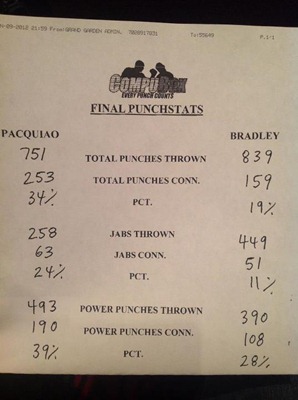 COMPUBOX
EVERY PUNCH COUNTS
FINAL PUNCHSTATS
PACQUIAO BRADLEY
751 TOTAL PUNCHES THROWN 839
253 TOTAL PUNCHES CONN. 159
34% PCT. 19%
258 JABS THROWN 449
63 JABS CONN. 51
24% PCT. 11%
493 POWER PUNCHES THROWN 390
190 POWER PUNCHES CONN. 108
39% PCT. 28%